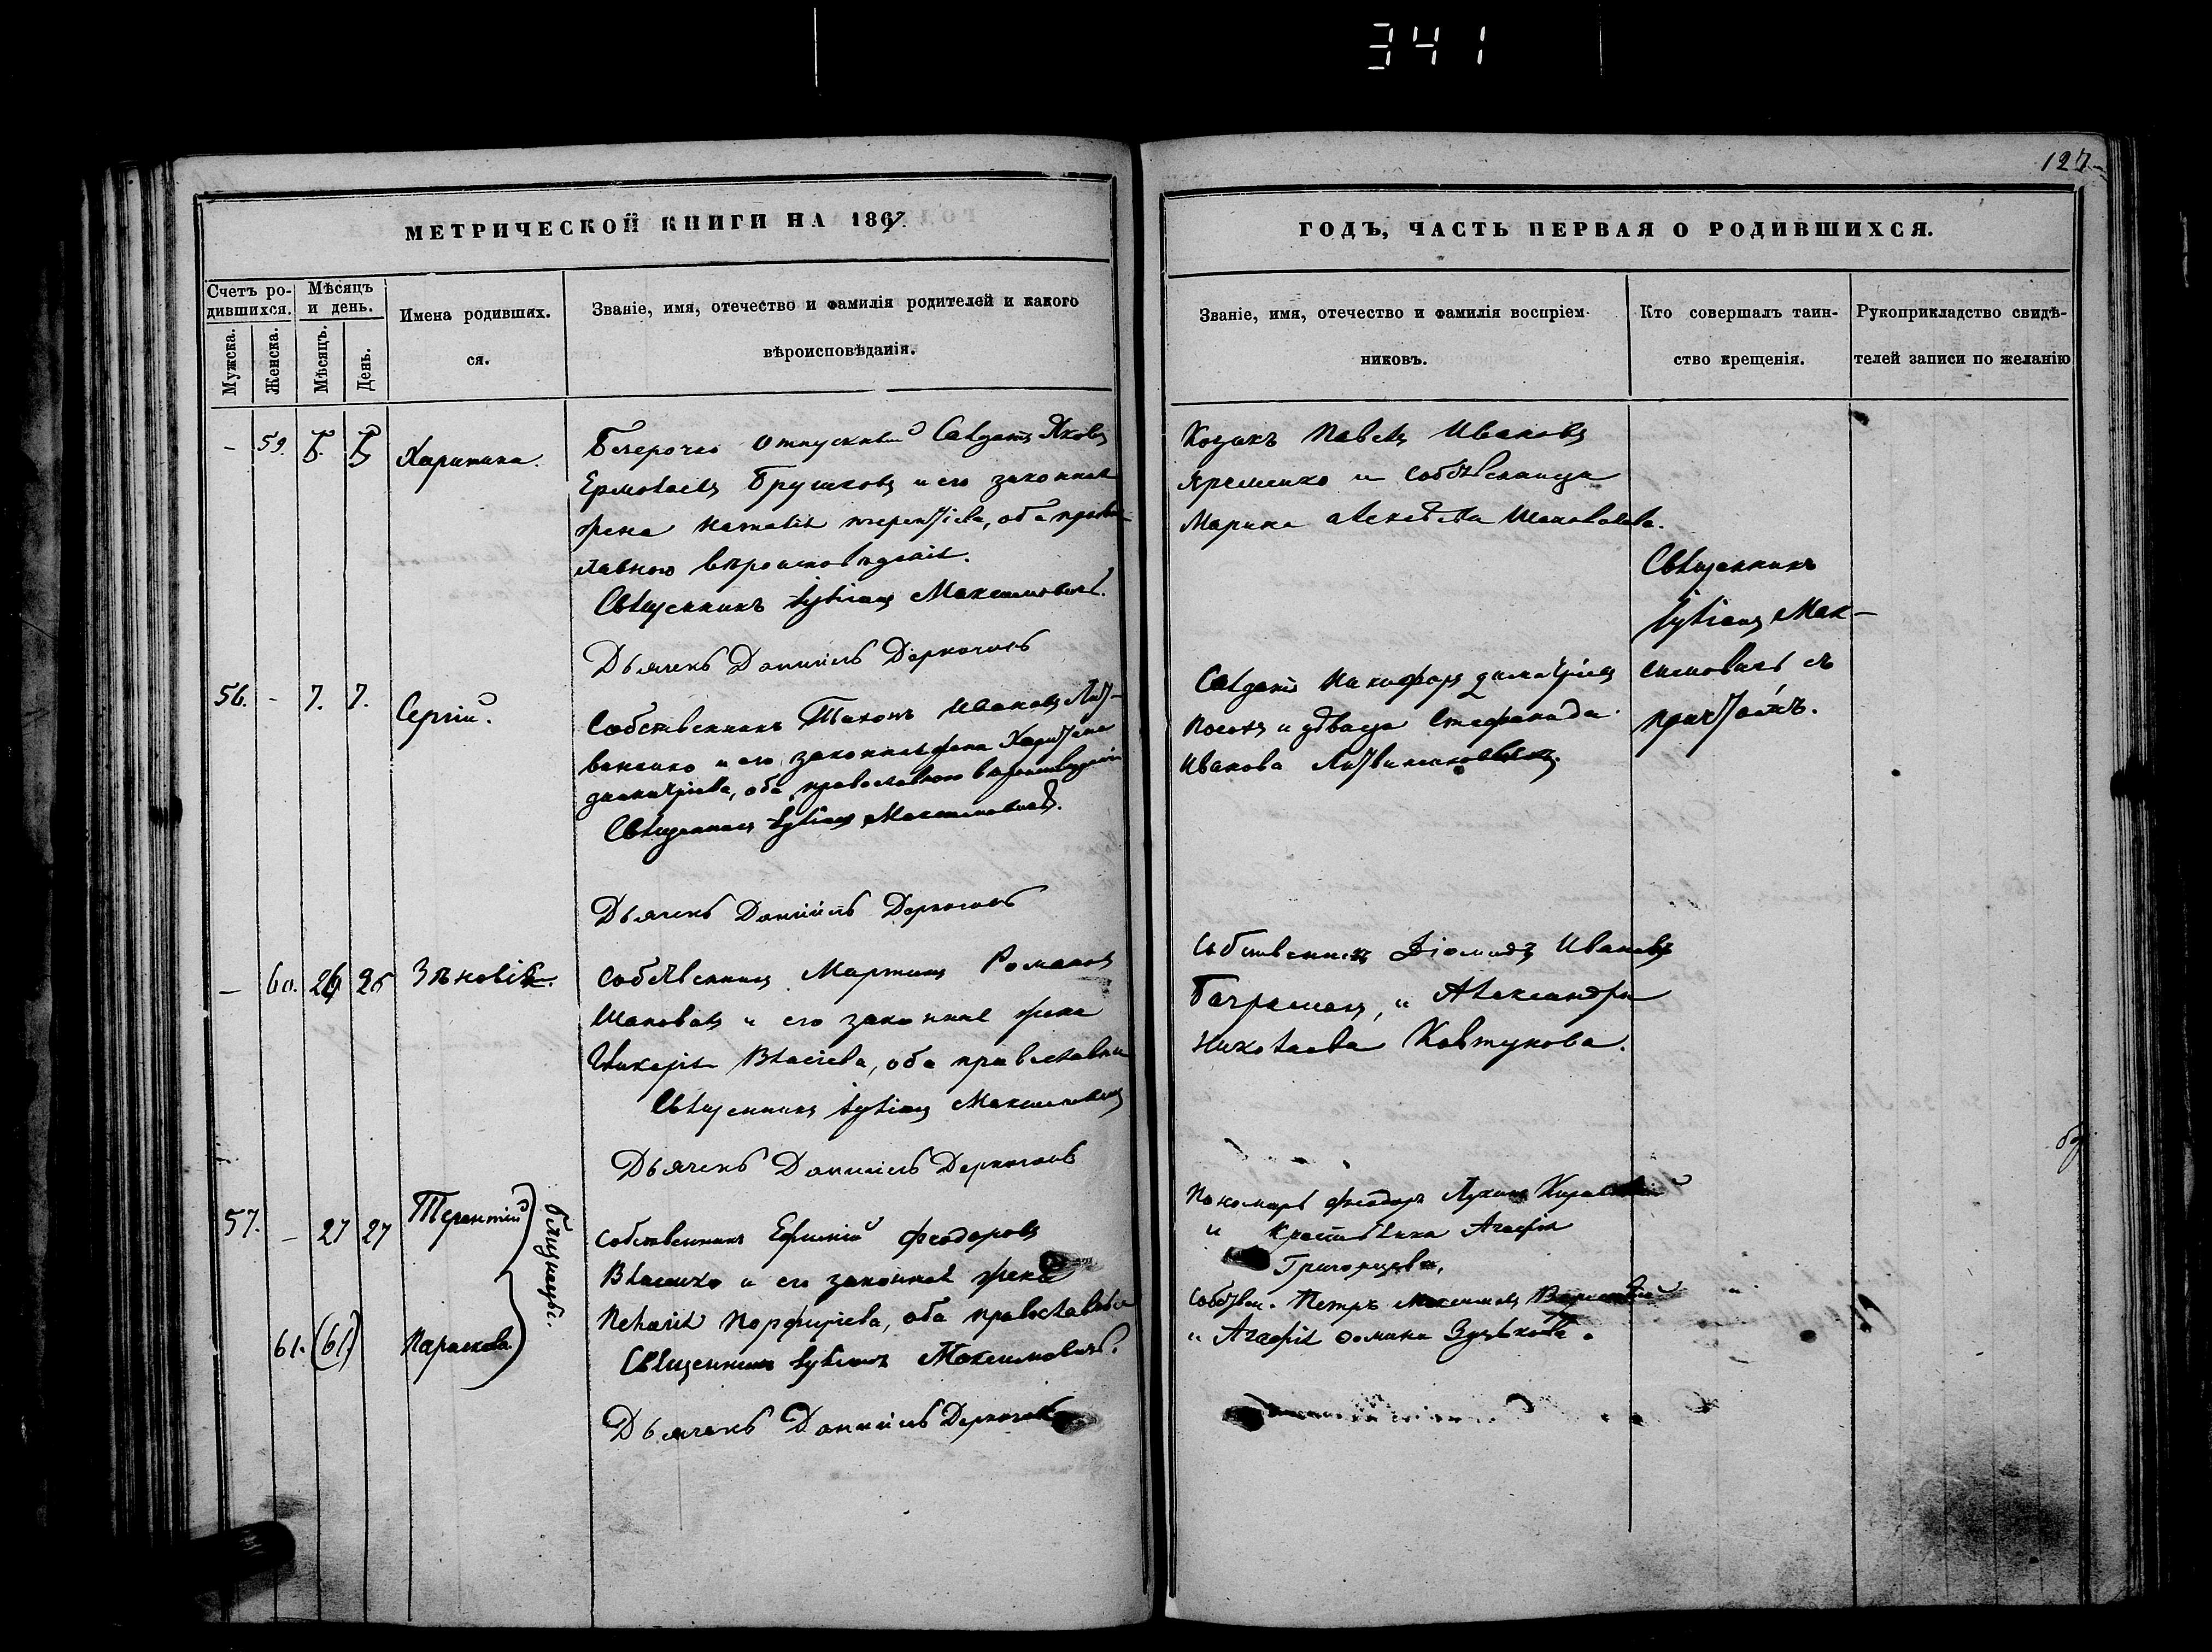 341
127
МЕТРИЧЕСКОЙ КНИГИ НА 1867.
Счетъ ро-
дившихся.
Мужска.
Женска.
Мѣсяцъ
и день.
Мѣсяцъ.
День.
Имена родивших.
ся.
Званіе, имя, отечество и фамилія родителей и какого
вѣроисповѣданія.
ГОДЪ, ЧАСТЬ ПЕРВАЯ О РОДИВШИХСЯ.
Званіе, имя, отечество и фамилія воспріем-
никовъ.
Кто совершалъ таин-
ство крещенія.
Рукоприкладство свидѣ-
телей записи по желанію
- 59.
Харитина.
отпускный Салдатъ Яковъ
Ермолаевъ Брушковъ и его законная
жена Наталія Терентіева, оба право
славного вѣроисповѣданія.
Священникъ Іуліанъ Максимовичъ.
Дьячекъ Даніилъ Деркачовъ
Козакъ Павелъ Ивановъ
Яременко и собственница
Марина Шаповалова.
Священникъ
Іуліанъ Мак-
симовичъ съ
причтомъ.
56. - 7. 7.
Сергій.
Собственникъ Тихонъ Ивановъ Лит-
виненко и его законная жена Харитина
Димитріева, оба православного вѣроисповѣданія
Священникъ Іуліанъ Максимовичъ.
Дьячекъ Даніилъ Деркачовъ
Салдатъ Никифоръ Димитріевъ
и вдова Стефанида
Иванова
- 60. 26 26
Зѣновія.
Собственникъ Мартинъ Романовъ
Шаповалъ и его законная жена
Гликерія Власіева, оба православни
Священникъ Іуліанъ Максимовичъ
Дьячекъ Даніилъ Деркачовъ
Собственникъ Діомидъ Ивановъ
и Александра
Николаева Ковтунова.
57. - 27 27
Терентій
близнецы.
61. (61.)
Параскева.
Собственникъ Ефимій Феодоровъ
Власенко и его законная жена
Пелагія Порфиріева, оба православни
Священникъ Іуліанъ Максимовичъ.
Дьячекъ Даніилъ Деркачовъ
Пономарь Феодоръ
и Агафія
Григоріева,
Собствен. Петръ Максимовъ
и Агафія Фомина